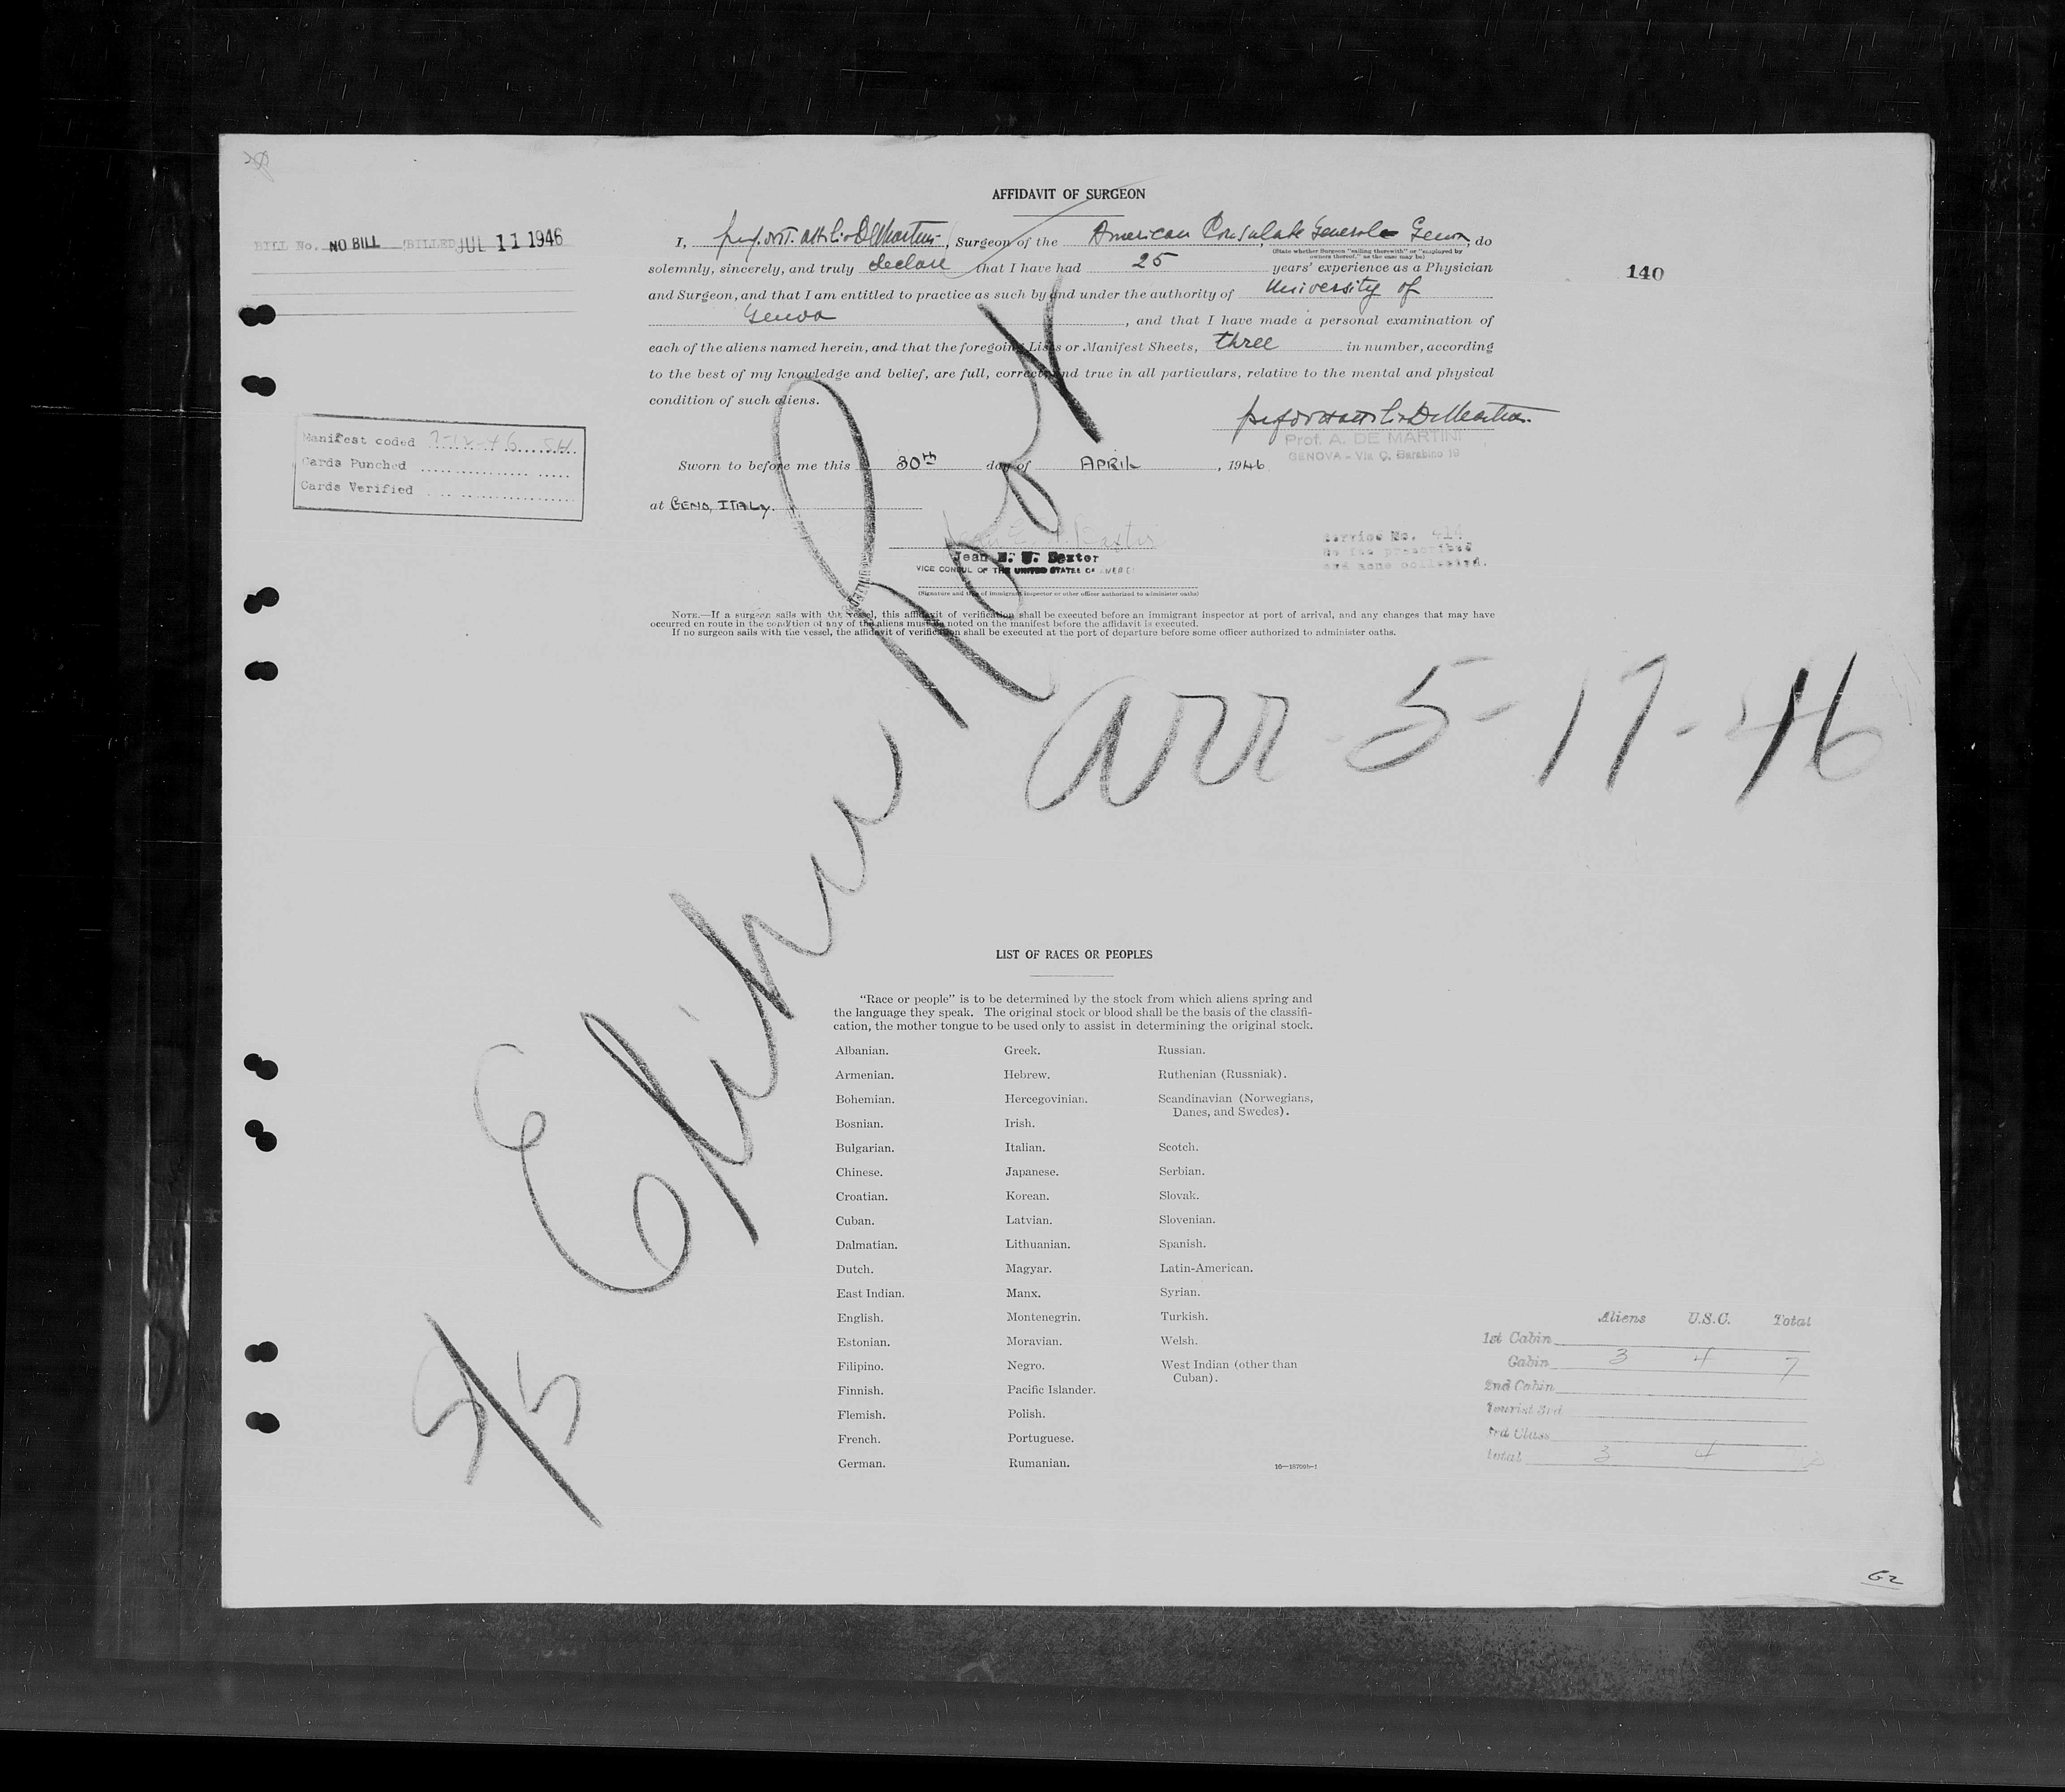 AFFIDAVIT OF SURGEON
BILL No. NO BILL (BILLED JUL 11 1946
I, prof. dott. Attilio De Martini, Surgeon of the American Consulate General Genoa, do
(State whether Surgeon "sailing therewith" or "employed by
owners thereof," as the case may be)
solemnly, sincerely, and truly declare that I have had 25 years' experience as a Physician
140
and Surgeon, and that I am entitled to practice as such by and under the authority of University of
Genoa, and that I have made a personal examination of
each of the aliens named herein, and that the foregoing Lists or Manifest Sheets, three in number, according
to the best of my knowledge and belief, are full, correct, and true in all particulars, relative to the mental and physical
condition of such aliens.
prof dott Attilio De Martini
Prof. A. DE MARTINI
GENOVA - Via C. Barabino 19
Manifest coded 7-12-46 SH
Cards Punched
Cards Verified
Sworn to before me this 30th day of APRIL, 1946
at GENOA, ITALY.
Service No. 414
No fee prescribed
and none collected.
VICE CONSUL OF THE UNITED STATES OF AMERICA
(Signature and title of immigrant inspector or other officer authorized to administer oaths)
NOTE.—If a surgeon sails with the vessel, this affidavit of verification shall be executed before an immigrant inspector at port of arrival, and any changes that may have
occurred en route in the condition of any of the aliens must be noted on the manifest before the affidavit is executed.
If no surgeon sails with the vessel, the affidavit of verification shall be executed at the port of departure before some officer authorized to administer oaths.
S/S Elihu Root
arr 5-17-46
LIST OF RACES OR PEOPLES
"Race or people" is to be determined by the stock from which aliens spring and
the language they speak. The original stock or blood shall be the basis of the classifi-
cation, the mother tongue to be used only to assist in determining the original stock.
Albanian. Greek. Russian.
Armenian. Hebrew. Ruthenian (Russniak).
Bohemian. Hercegovinian. Scandinavian (Norwegians,
Danes, and Swedes).
Bosnian. Irish.
Bulgarian. Italian. Scotch.
Chinese. Japanese. Serbian.
Croatian. Korean. Slovak.
Cuban. Latvian. Slovenian.
Dalmatian. Lithuanian. Spanish.
Dutch. Magyar. Latin-American.
East Indian. Manx. Syrian.
English. Montenegrin. Turkish.
Estonian. Moravian. Welsh.
Filipino. Negro. West Indian (other than
Cuban).
Finnish. Pacific Islander.
Flemish. Polish.
French. Portuguese.
German. Rumanian.
Aliens U.S.C. Total
1st Cabin
Cabin 3 4 7
2nd Cabin
Tourist 3rd
3rd Class
Total 3 4